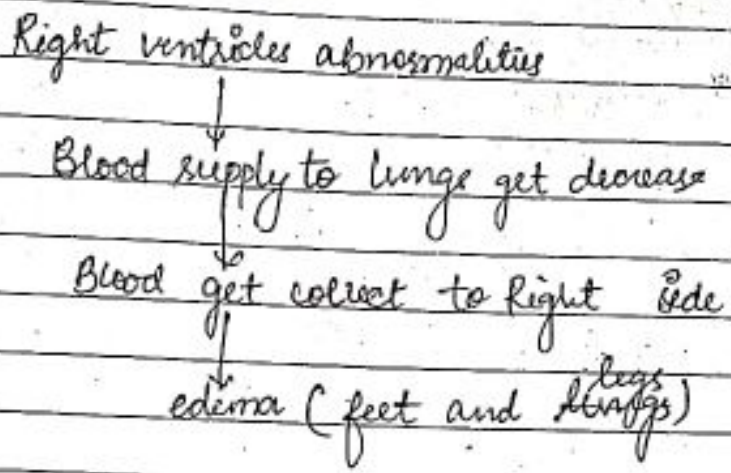 Right ventricles abnormalities
↓
Blood supply to lungs get decrease
↓
Blood get collect to Right side
↓
edema (feet and legs)